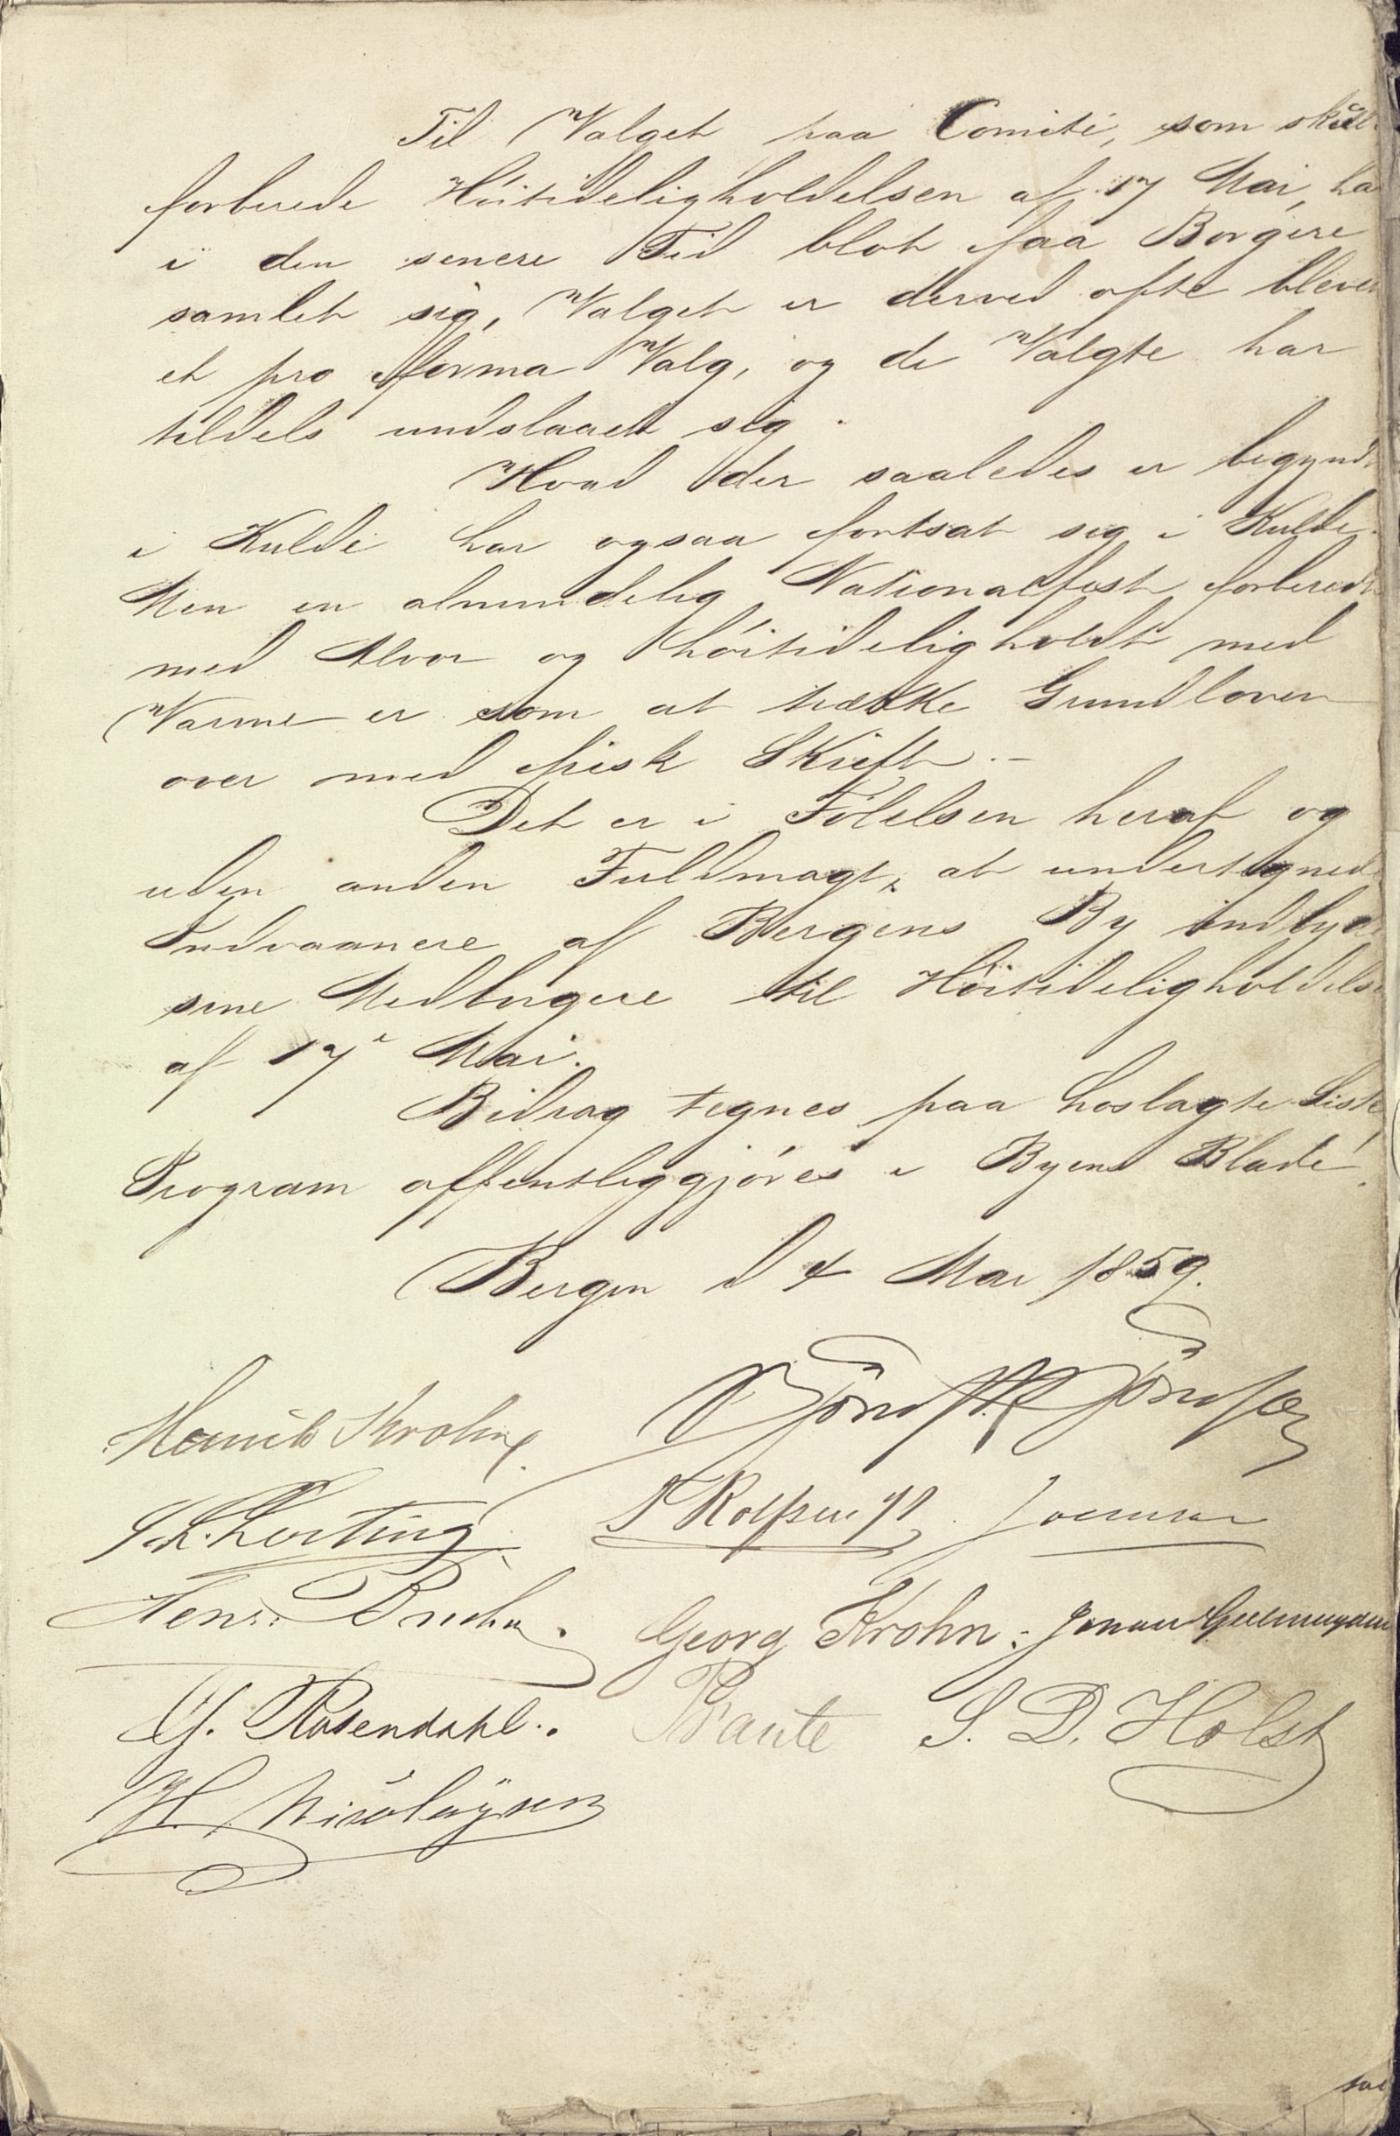 Til Valget paa Comité, som skul
forberede Höitideligholdelsen af 17 Mai, ha
i den senere Tid blot faa Borgere
samlet sig, Valget er derved ofte bleve
et pro forma Valg, og de Valgte har
tildels undslaaet sig.
Hvad der saaledes er begynd
i Kulde har ogsaa fortsat sig i Kulde.
Men en almindelig Nationalfest forberedt
med Alvor og höitideligholdt med
Varme er som at trække Grundloven
over med frisk Skrift. –
Det er i Fölelsen heraf og
uden anden Fuldmagt, at undertegned
Indvaanere af Bergens By indbyd
sine Medborgere til Höitideligholdels
af 17e Mai.
Bidrag tegnes paa hoslagte Liste,
Program offentliggjöres i Byens Blade.
Bergen d 4 Mai 1859.
Henrik Krohn. Björnst. Björnson
Gerting F Rolfsen
Georg Krohn. Jonas Geelmuyden
G. Rosendahl. Faute S. D. Holst
H. Nicolaysen